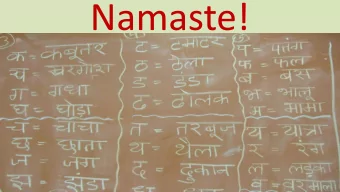 Namaste!
क = कबूतर
ख = खरगोश
ग = गधा
घ = घोड़ा
च = चाचा
छ = छाता
ज = जग
झ = झंडा
ट = टमाटर
ठ = ठेला
ड = डंडा
ढ = ढोलक
त = तरबूज
थ = थैला
द = दुकान
प = पतंग
फ = फल
ब = बस
भ = भालू
म = मामा
य = यात्रा
र = रंग
ल = लड़का